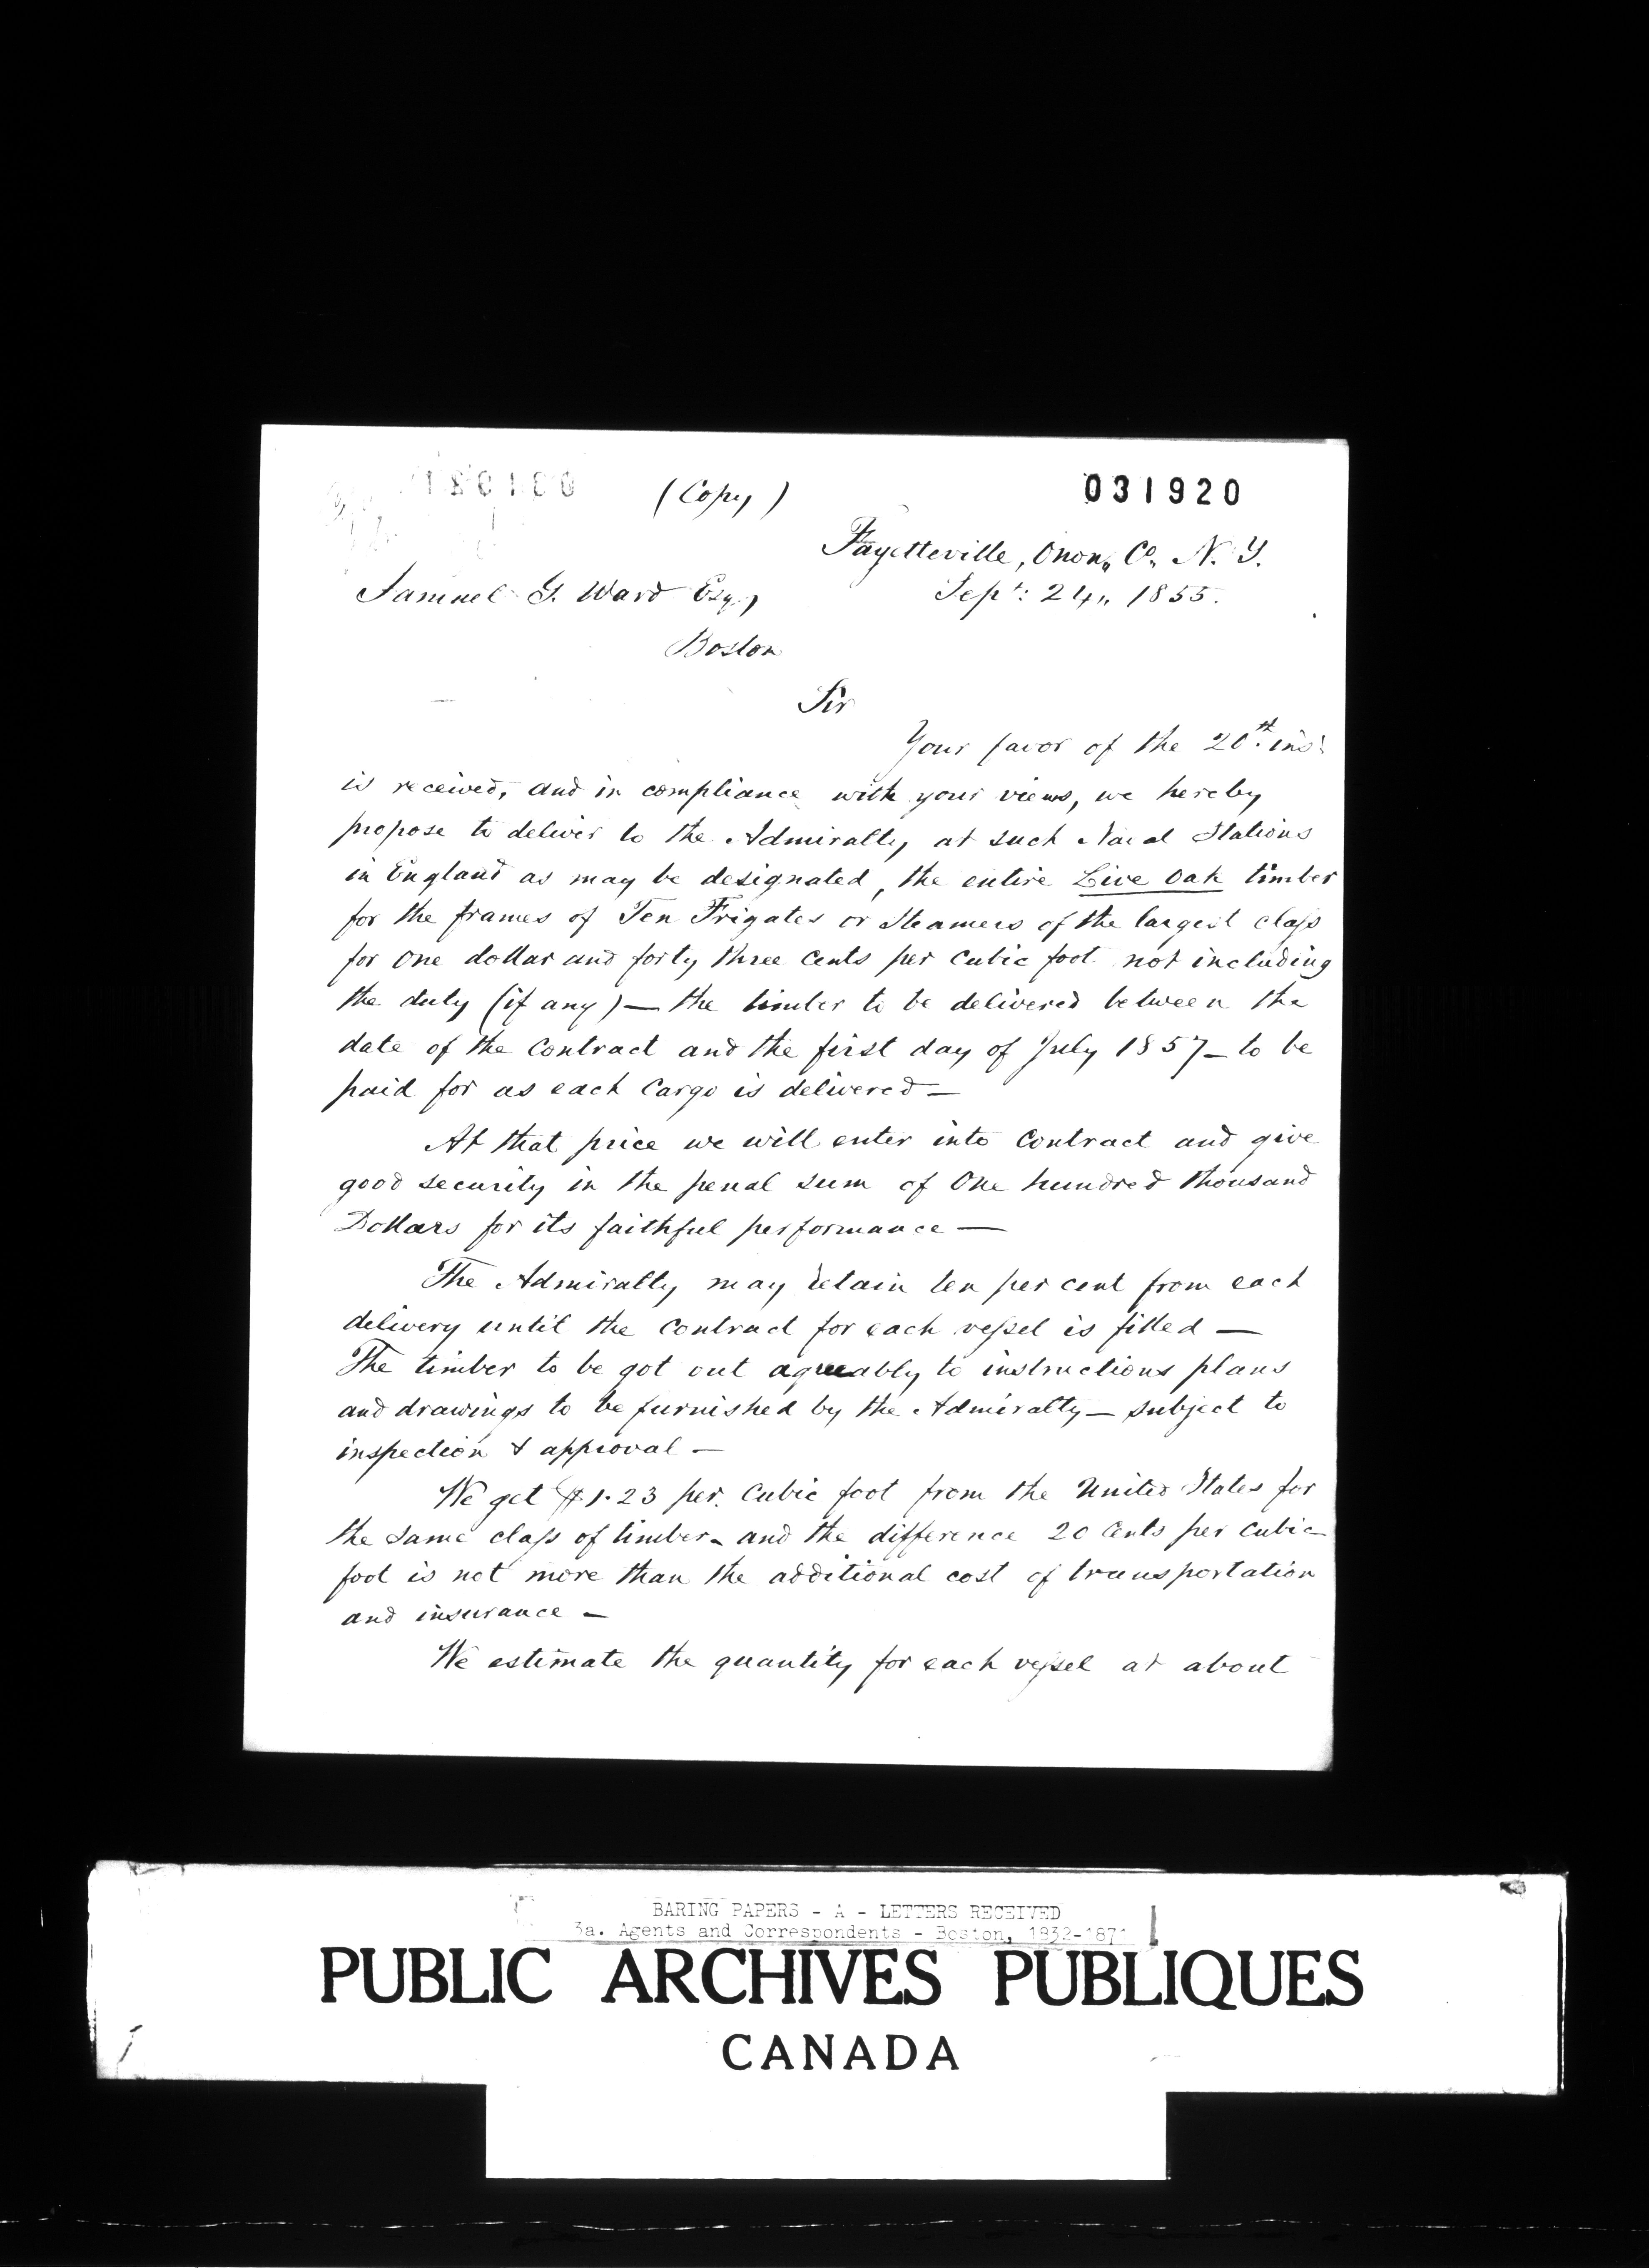 (Copy)
031920
Fayetteville, Onon, Co, N. Y.
Samuel G. Ward Esq,
Sept: 24,, 1855.
Boston
Sir
Your favor of the 20th inst
is received, and in compliance with your views, we hereby
propose to deliver to the Admiralty, at such Naval Stations
in England as may be designated, the entire Live Oak timber
for the frames of Ten Frigates or Steamers of the largest class
for One dollar and forty three Cents per Cubic foot not including
the duty (if any) — the timber to be delivered between the
date of the Contract and the first day of July 1857 — to be
paid for as each Cargo is delivered —
At that price we will enter into Contract and give
good security in the penal sum of One hundred thousand
Dollars for its faithful performance —
The Admiralty may retain ten per cent from each
delivery until the Contract for each vessel is filled —
The timber to be got out agreeably to instructions plans
and drawings to be furnished by the Admiralty — subject to
inspection & approval —
We get $1.23 per Cubic foot from the United States for
the same class of timber - and the difference 20 Cents per Cubic
foot is not more than the additional cost of transportation
and insurance —
We estimate the quantity for each vessel at about
BARING PAPERS - A - LETTERS RECEIVED
3a. Agents and Correspondents - Boston, 1832-1871
PUBLIC ARCHIVES PUBLIQUES
CANADA